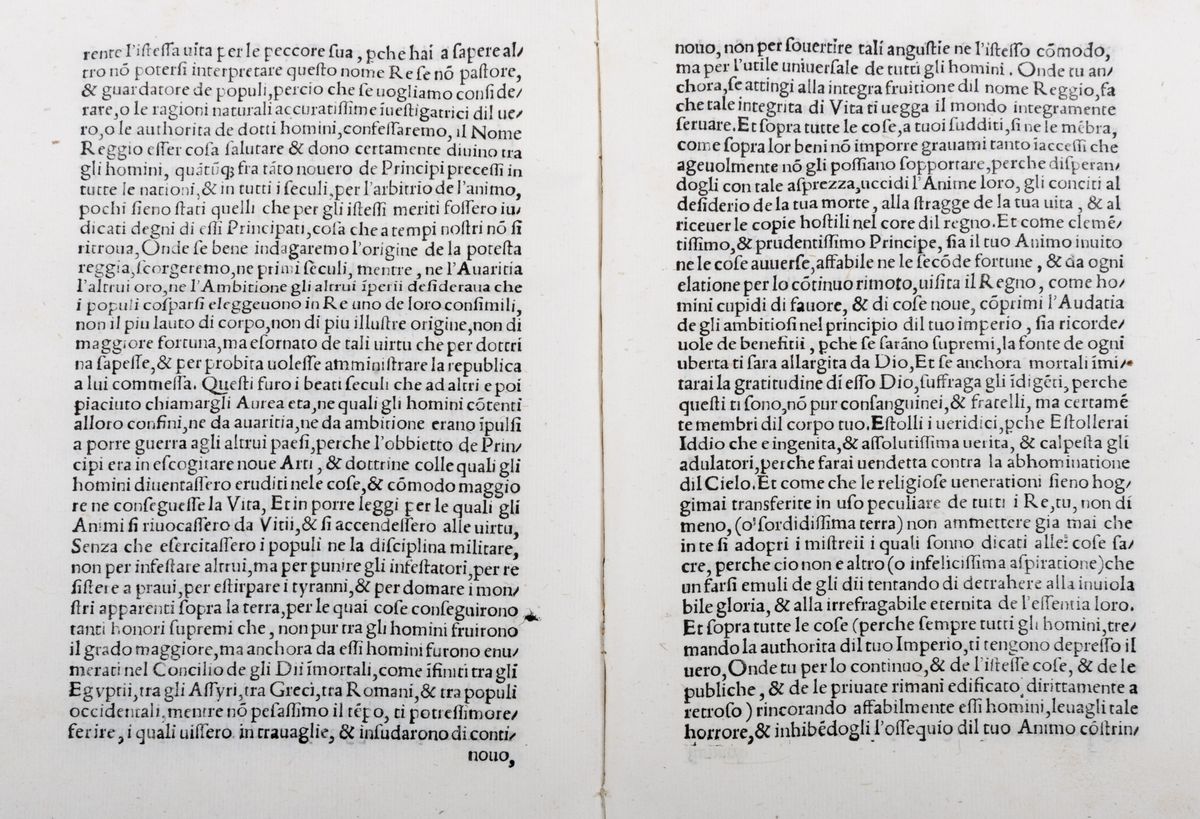 rente l'isteſſa uita per le peccore ſua, pche hai a ſapere al/
tro nō poterſi interpretare queſto nome Re ſe nō paſtore,
& guardatore de populi, percio che ſe uogliamo conſide/
rare, o le ragioni naturali accuratiſſime īueſtigatrici dil ue/
ro, o le authorita de dotti homini, confeſſaremo, il Nome
Reggio eſſer coſa ſalutare & dono certamente diuino tra
gli homini, quātūq; fra tāto nouero de Principi preceſſi in
tutte le nationi, & in tutti i ſeculi, per l'arbitrio de l'animo,
pochi ſieno ſtati quelli che per gli iſteſſi meriti foſſero iu/
dicati degni di eſſi Principati, coſa che a tempi noſtri nō ſi
ritroua, Onde ſe bene indagaremo l'origine de la poteſta
reggia, ſcorgeremo, ne primi ſeculi, mentre, ne l'Auaritia
l'altrui oro, ne l'Ambitione gli altrui īperii deſideraua che
i populi coſparſi eleggeuono in Re uno de loro conſimili,
non il piu lauto di corpo, non di piu illuſtre origine, non di
maggiore fortuna, ma eſornato de tali uirtu che per dottri
na ſapeſſe, & per probita uoleſſe amminiſtrare la republica
a lui commeſſa. Queſti furo i beati ſeculi che ad altri e poi
piaciuto chiamargli Aurea eta, ne quali gli homini cōtenti
alloro confini, ne da auaritia, ne da ambitione erano īpulſi
a porre guerra agli altrui paeſi, perche l'obbietto de Prin/
cipi era in eſcogitare noue Arti, & dottrine colle quali gli
homini diuentaſſero eruditi nele coſe, & cōmodo maggio
re ne conſegueſſe la Vita, Et in porre leggi per le quali gli
Animi ſi riuocaſſero da Vitii, & ſi accendeſſero alle uirtu,
Senza che eſercitaſſero i populi ne la diſciplina militare,
non per infeſtare altrui, ma per punire gli infeſtatori, per re
ſiſtere a praui, per eſtirpare i tyranni, & per domare i mon/
ſtri apparenti ſopra la terra, per le quai coſe conſeguirono
tanti honori ſupremi che, non pur tra gli homini fruirono
il grado maggiore, ma anchora da eſſi homini furono enu/
merati nel Concilio de gli Dii īmortali, come īfiniti tra gli
Egyptii, tra gli Aſſyri, tra Greci, tra Romani, & tra populi
occidentali, mentre nō peſaſſimo il tēpo, ti potreſſimo re/
ferire, i quali uiſſero in trauaglie, & inſudarono di conti/
nouo,
nouo, non per ſouertire tali anguſtie ne l'iſteſſo cōmodo,
ma per l'utile uniuerſale de tutti gli homini. Onde tu an/
chora, ſe attingi alla integra fruitione dil nome Reggio, fa
che tale integrita di Vita ti uegga il mondo integramente
ſeruare. Et ſopra tutte le coſe, a tuoi ſudditi, ſi ne le mēbra,
come ſopra lor beni nō imporre grauami tanto īacceſſi che
ageuolmente nō gli poſſiano ſopportare, perche diſperan/
dogli con tale aſprezza, uccidi l'Anime loro, gli conciti al
deſiderio de la tua morte, alla ſtragge de la tua uita, & al
riceuer le copie hoſtili nel core dil regno. Et come clemē/
tiſſimo, & prudentiſſimo Principe, ſia il tuo Animo inuito
ne le coſe auuerſe, affabile ne le ſecōde fortune, & da ogni
elatione per lo cōtinuo rimoto, uiſita il Regno, come ho/
mini cupidi di fauore, & di coſe noue, cōprimi l'Audatia
de gli ambitioſi nel principio dil tuo imperio, ſia ricorde/
uole de benefitii, pche ſe ſarāno ſupremi, la fonte de ogni
uberta ti ſara allargita da Dio, Et ſe anchora mortali īmi/
tarai la gratitudine di eſſo Dio, ſuffraga gli īdigēti, perche
queſti ti ſono, nō pur conſanguinei, & fratelli, ma certamē
te membri dil corpo tuo. Eſtolli i ueridici, pche Eſtollerai
Iddio che e ingenita, & aſſolutiſſima uerita, & calpeſta gli
adulatori, perche farai uendetta contra la abhominatione
dil Cielo. Et come che le religioſe uenerationi ſieno hog/
gimai transferite in uſo peculiare de tutti i Re, tu, non di
meno, (o' ſordidiſſima terra) non ammettere gia mai che
in te ſi adopri i miſtreii i quali ſonno dicati alle coſe ſa/
cre, perche cio non e altro (o infeliciſſima aſpiratione) che
un farſi emuli de gli dii tentando di detrahere alla inuiola
bile gloria, & alla irrefragabile eternita de l'eſſentia loro.
Et ſopra tutte le coſe (perche ſempre tutti gli homini, tre/
mando la authorita dil tuo Imperio, ti tengono depreſſo il
uero, Onde tu per lo continuo, & de l'iſteſſe coſe, & de le
publiche, & de le priuate rimani edificato dirittamente a
retroſo) rincorando affabilmente eſſi homini, leuagli tale
horrore, & inhibēdogli l'oſſequio dil tuo Animo cōſtrin/